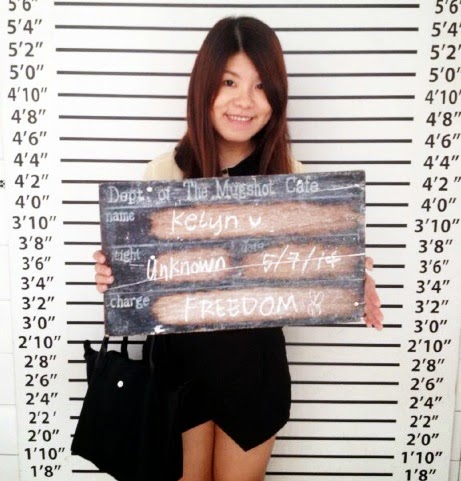 5'6" 5'6"
5'4" 5'4"
5'2" 5'2"
5'0" 5'0"
4'10" 4'10"
4'8" 4'8"
4'6" 4'6"
4'4" 4'4"
4'2" 4'2"
4'0" 4'0"
3'10" 3'10"
3'8" 3'8"
3'6" 3'6"
3'4" 3'4"
3'2" 3'2"
3'0" 3'0"
2'10" 2'10"
2'8" 2'8"
2'6" 2'6"
2'4" 2'4"
2'2' 2'2"
2'0" 2'0"
1'10" 1'10"
1'8" 1'8"
Dept. of The Mugshot Cafe
name Kelyn
Unknown 5/7/14
charge FREEDOM